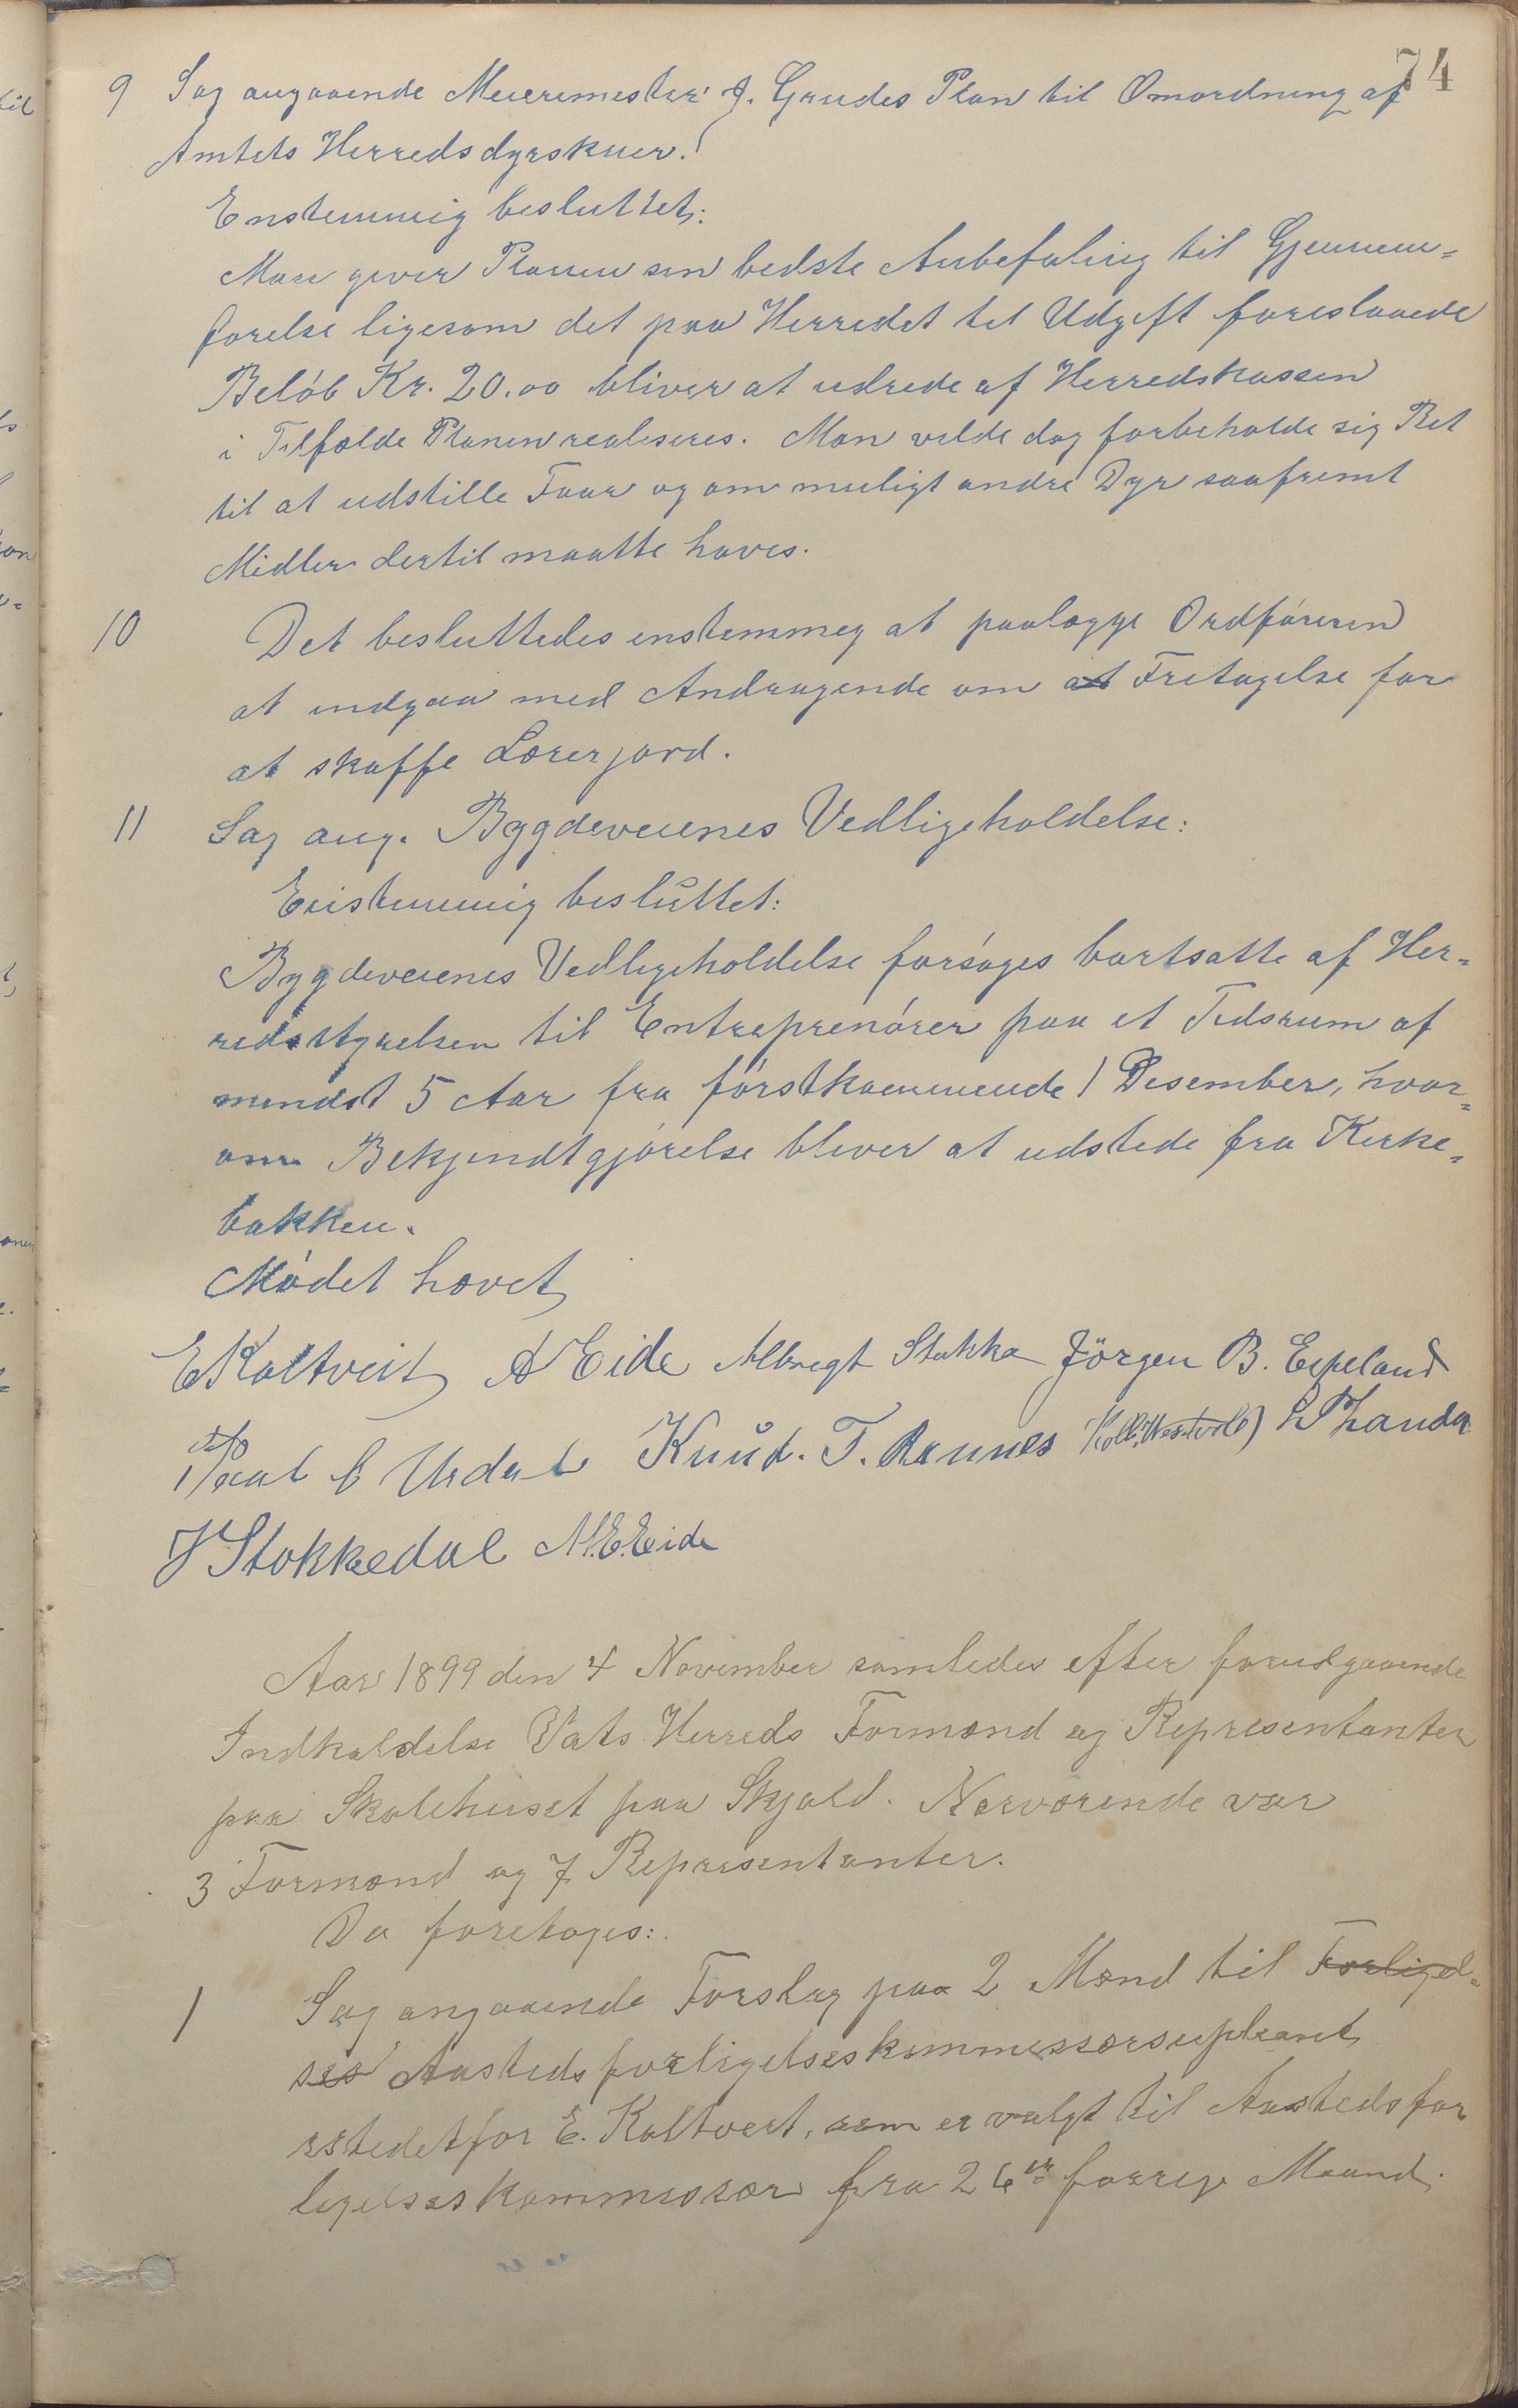 74
9 Sag angaaende Meierimester J. Grudes Plan til Omordning af
Amtets Herredsdyrskuer.
Enstemmig besluttet:
Man giver Planen sin bedste Anbefaling til Gjennem-
førelse ligesom det paa Herredet til Udgift foreslaaede
Beløb Kr. 20.00 bliver at udrede af Herredskassen
i Tilfælde Planen realiseres. Man vilde dog forbeholde sig Ret
til at udstille Faar og om muligt andre Dyr saafremt
Midler dertil maatte haves.
10 Det besluttedes enstemmig at paalægge Ordføreren
at indgaa med Andragende om at Fritagelse for
at skaffe Lærerjord.
11 Sag ang. Bygdeveienes Vedligeholdelse:
Enistemmig besluttet:
Bygdeveienes Vedligeholdelse forsøges bortsatte af Her-
redsstyrelsen til Entreprenører paa et Tidsrum af
mindst 5 Aar fra førstkommende 1 Desember, hvor-
om Bekjendtgjørelse bliver at udstede fra Kirke-
bakken.
Mødet hævet
E Kaltveit A Eide Albregt Stakka Jörgen B. Espeland
Paal Urdal Knud. T. Rannes L P Landa
J Stokkedal M.E. Eide
Aar 1899 den 4 November samledes efter forudgaaende
Indkaldelse Vats Herreds Formænd og Representanter
paa Skolehuset paa Skjold. Nærværende var
3 Formænd og 7 Representanter.
Da foretoges:
1 Sag angaaende Forslag paa 2 Mænd til Forligel-
ses Aastedsforligelseskommissærsupleant
istedetfor E. Kaltveit, som er valgt til Aastedsfor
ligelseskommissær fra 26de forrige Maaned.